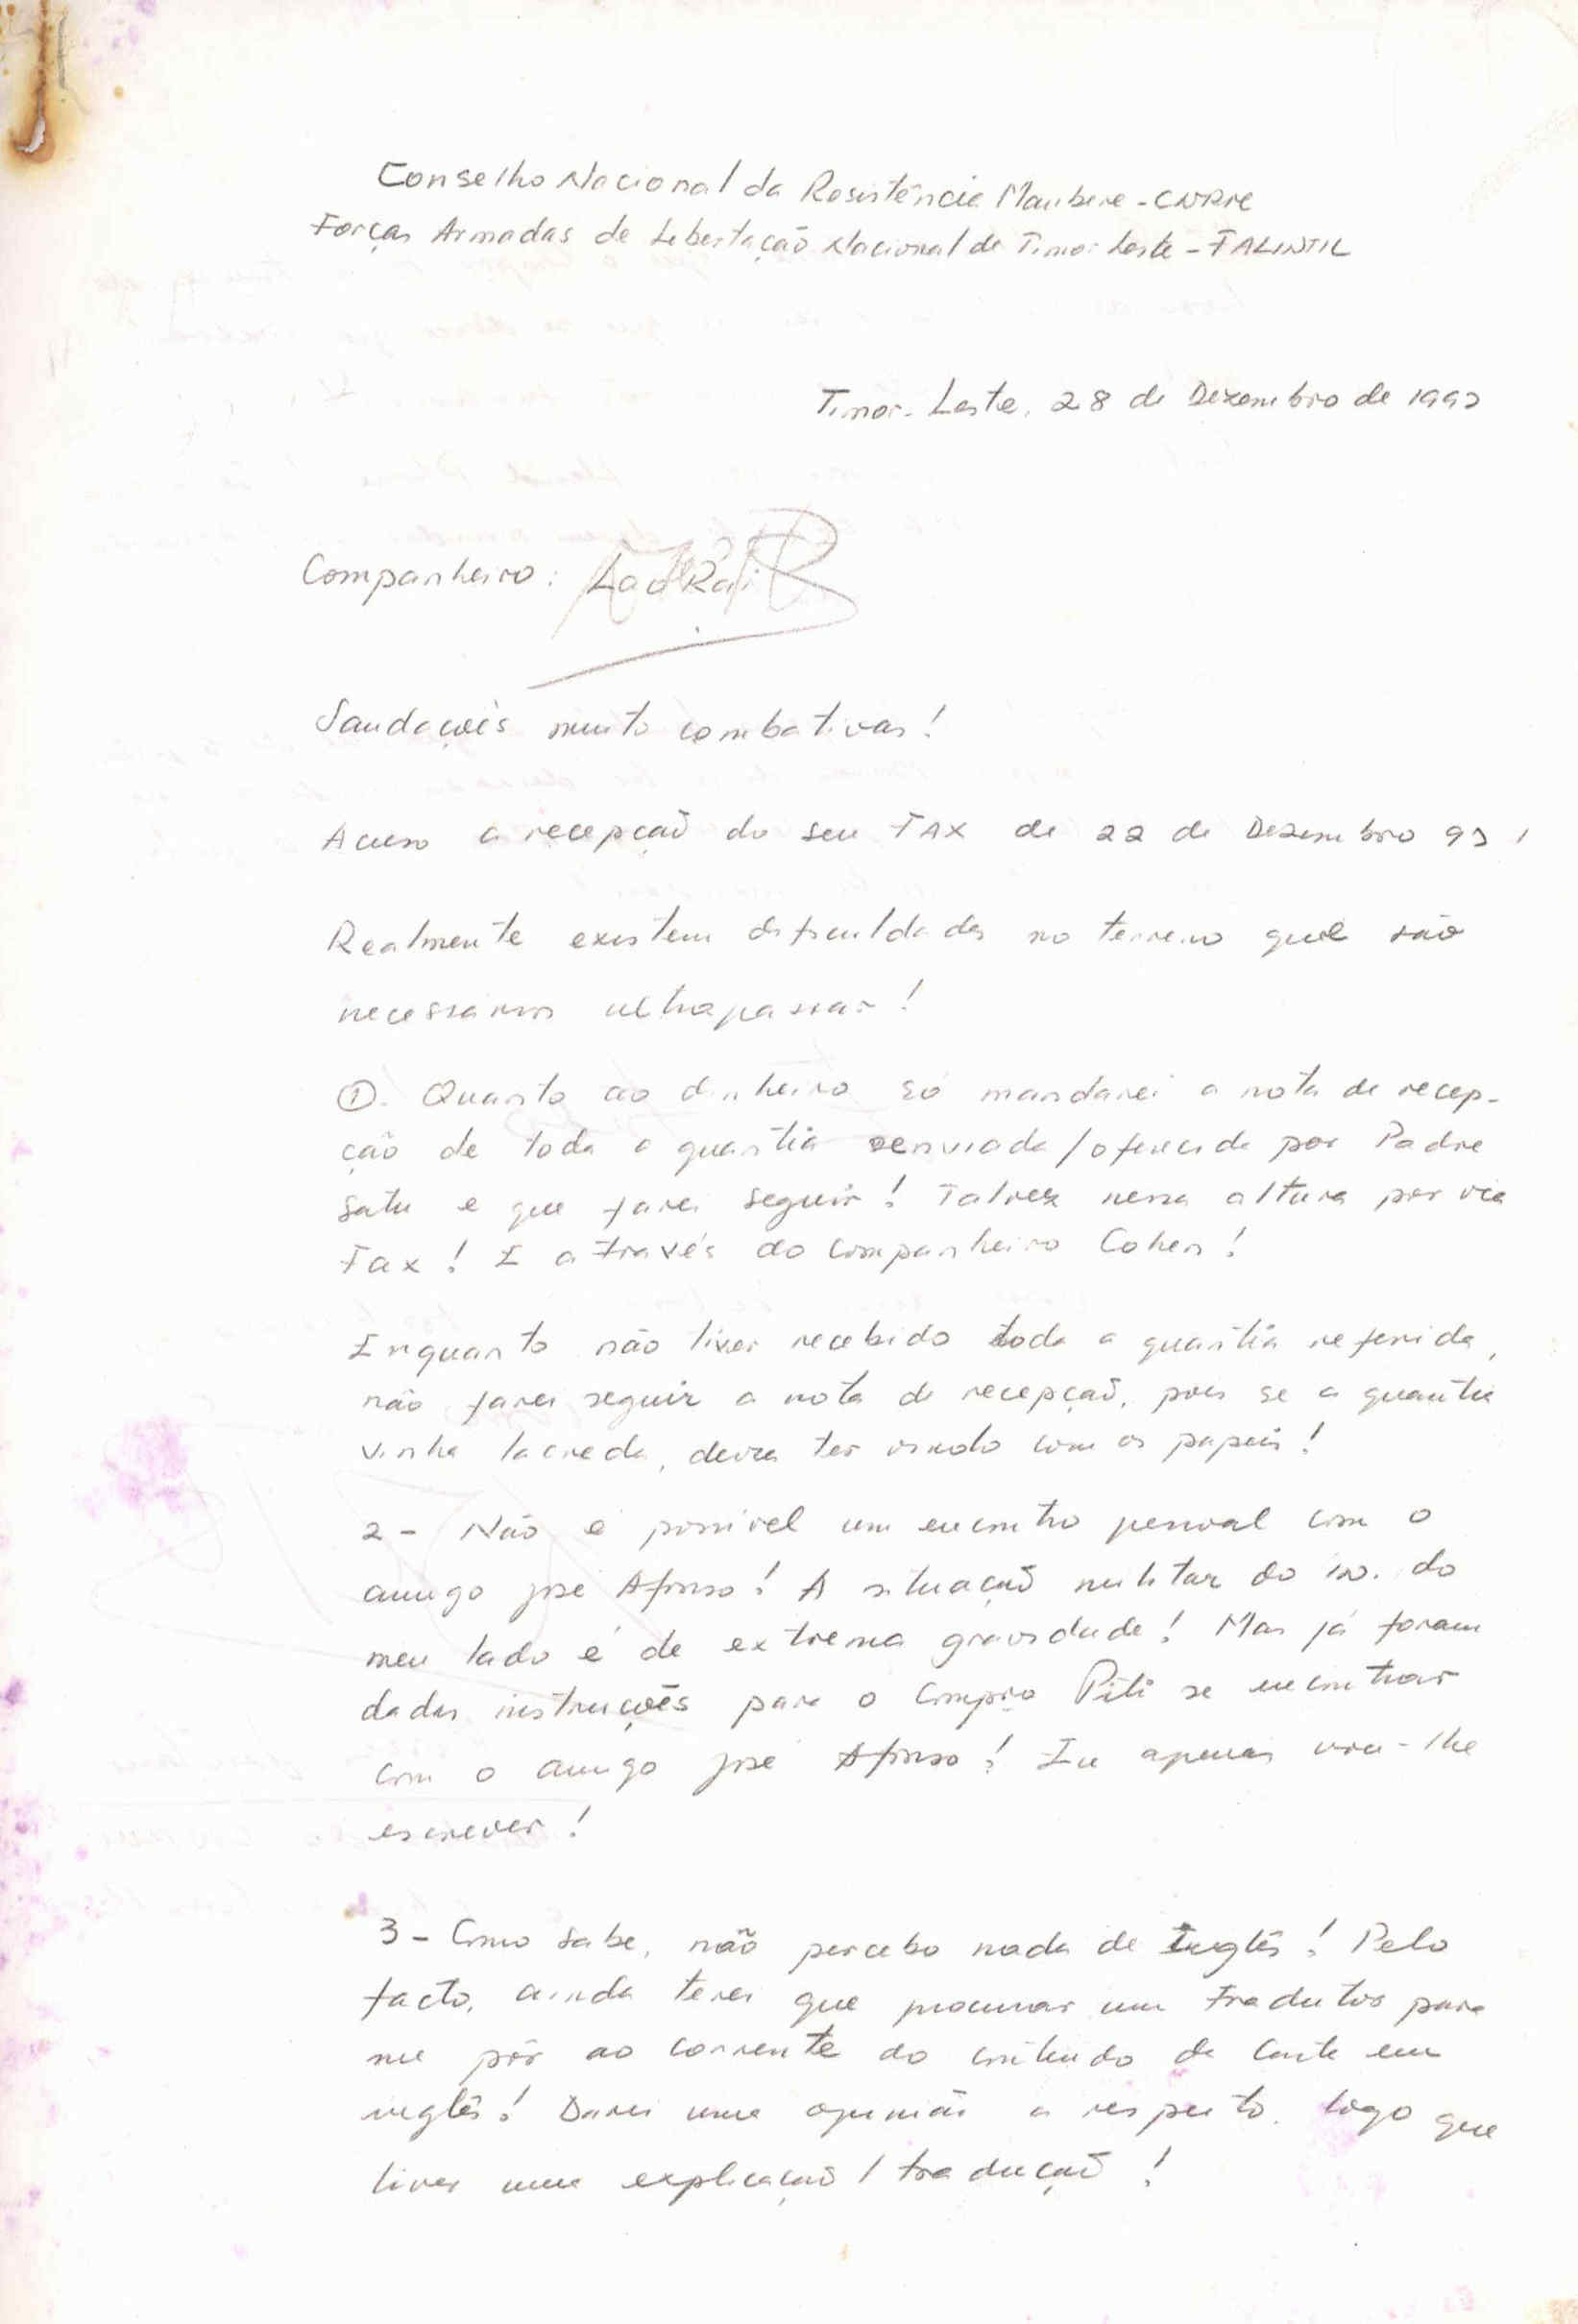 Conselho Nacional da Resistência Maubere - CNRM
Forças Armadas de Libertação Nacional de Timor Leste - FALINTIL
Timor-Leste, 28 de Dezembro de 1993
Companheiro: Lao Rai
Saudações muito combativas!
Acuso a recepção do seu FAX de 22 de Dezembro 93!
Realmente existem dificuldades no terreno que são
necessários ultrapassar!
①. Quanto ao dinheiro só mandarei a nota de recep-
ção de toda a quantia enviada/oferecida por Padre
Satu e que farei seguir! Talvez nessa altura por via
Fax! E através do companheiro Cohen!
Enquanto não tiver recebido toda a quantia referida,
não farei seguir a nota de recepção, pois se a quantia
vinha lacrada, devia ter vindo com os papeis!
2 - Não é possível um encontro pessoal com o
amigo José Afonso! A situação militar do in. do
meu lado é de extrema gravidade! Mas já foram
dadas instruções para o Compro Piti se encontrar
com o amigo José Afonso! Eu apenas vou-lhe
escrever!
3 - Como sabe, não percebo nada de Inglês! Pelo
facto, ainda terei que procurar um tradutor para
me pôr ao corrente do conteúdo da carta em
inglês! Darei uma opinião a respeito. logo que
tiver uma explicação / tradução!